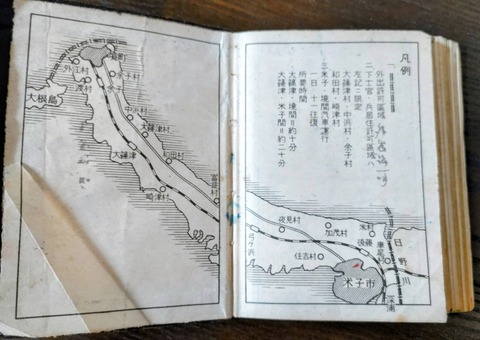 凡例
一、外出許可区域
二、下士官、兵居住許可区域ハ
左記ニ限定
大篠津村、中浜村、余子村
和田村、崎津村
三、米子、境間汽車運行
一日 十一往復
所要時間
大篠津、境間＝約十分
大篠津、米子間＝約二十分
境町
外江村
渡村
余子村
余子
大根島
中浜村
大篠津村
大篠津
和田村
崎津村
富益村
弓ヶ浜
夜見村
加茂村
住吉村
米村
後藤
車尾村
日野川
米子市